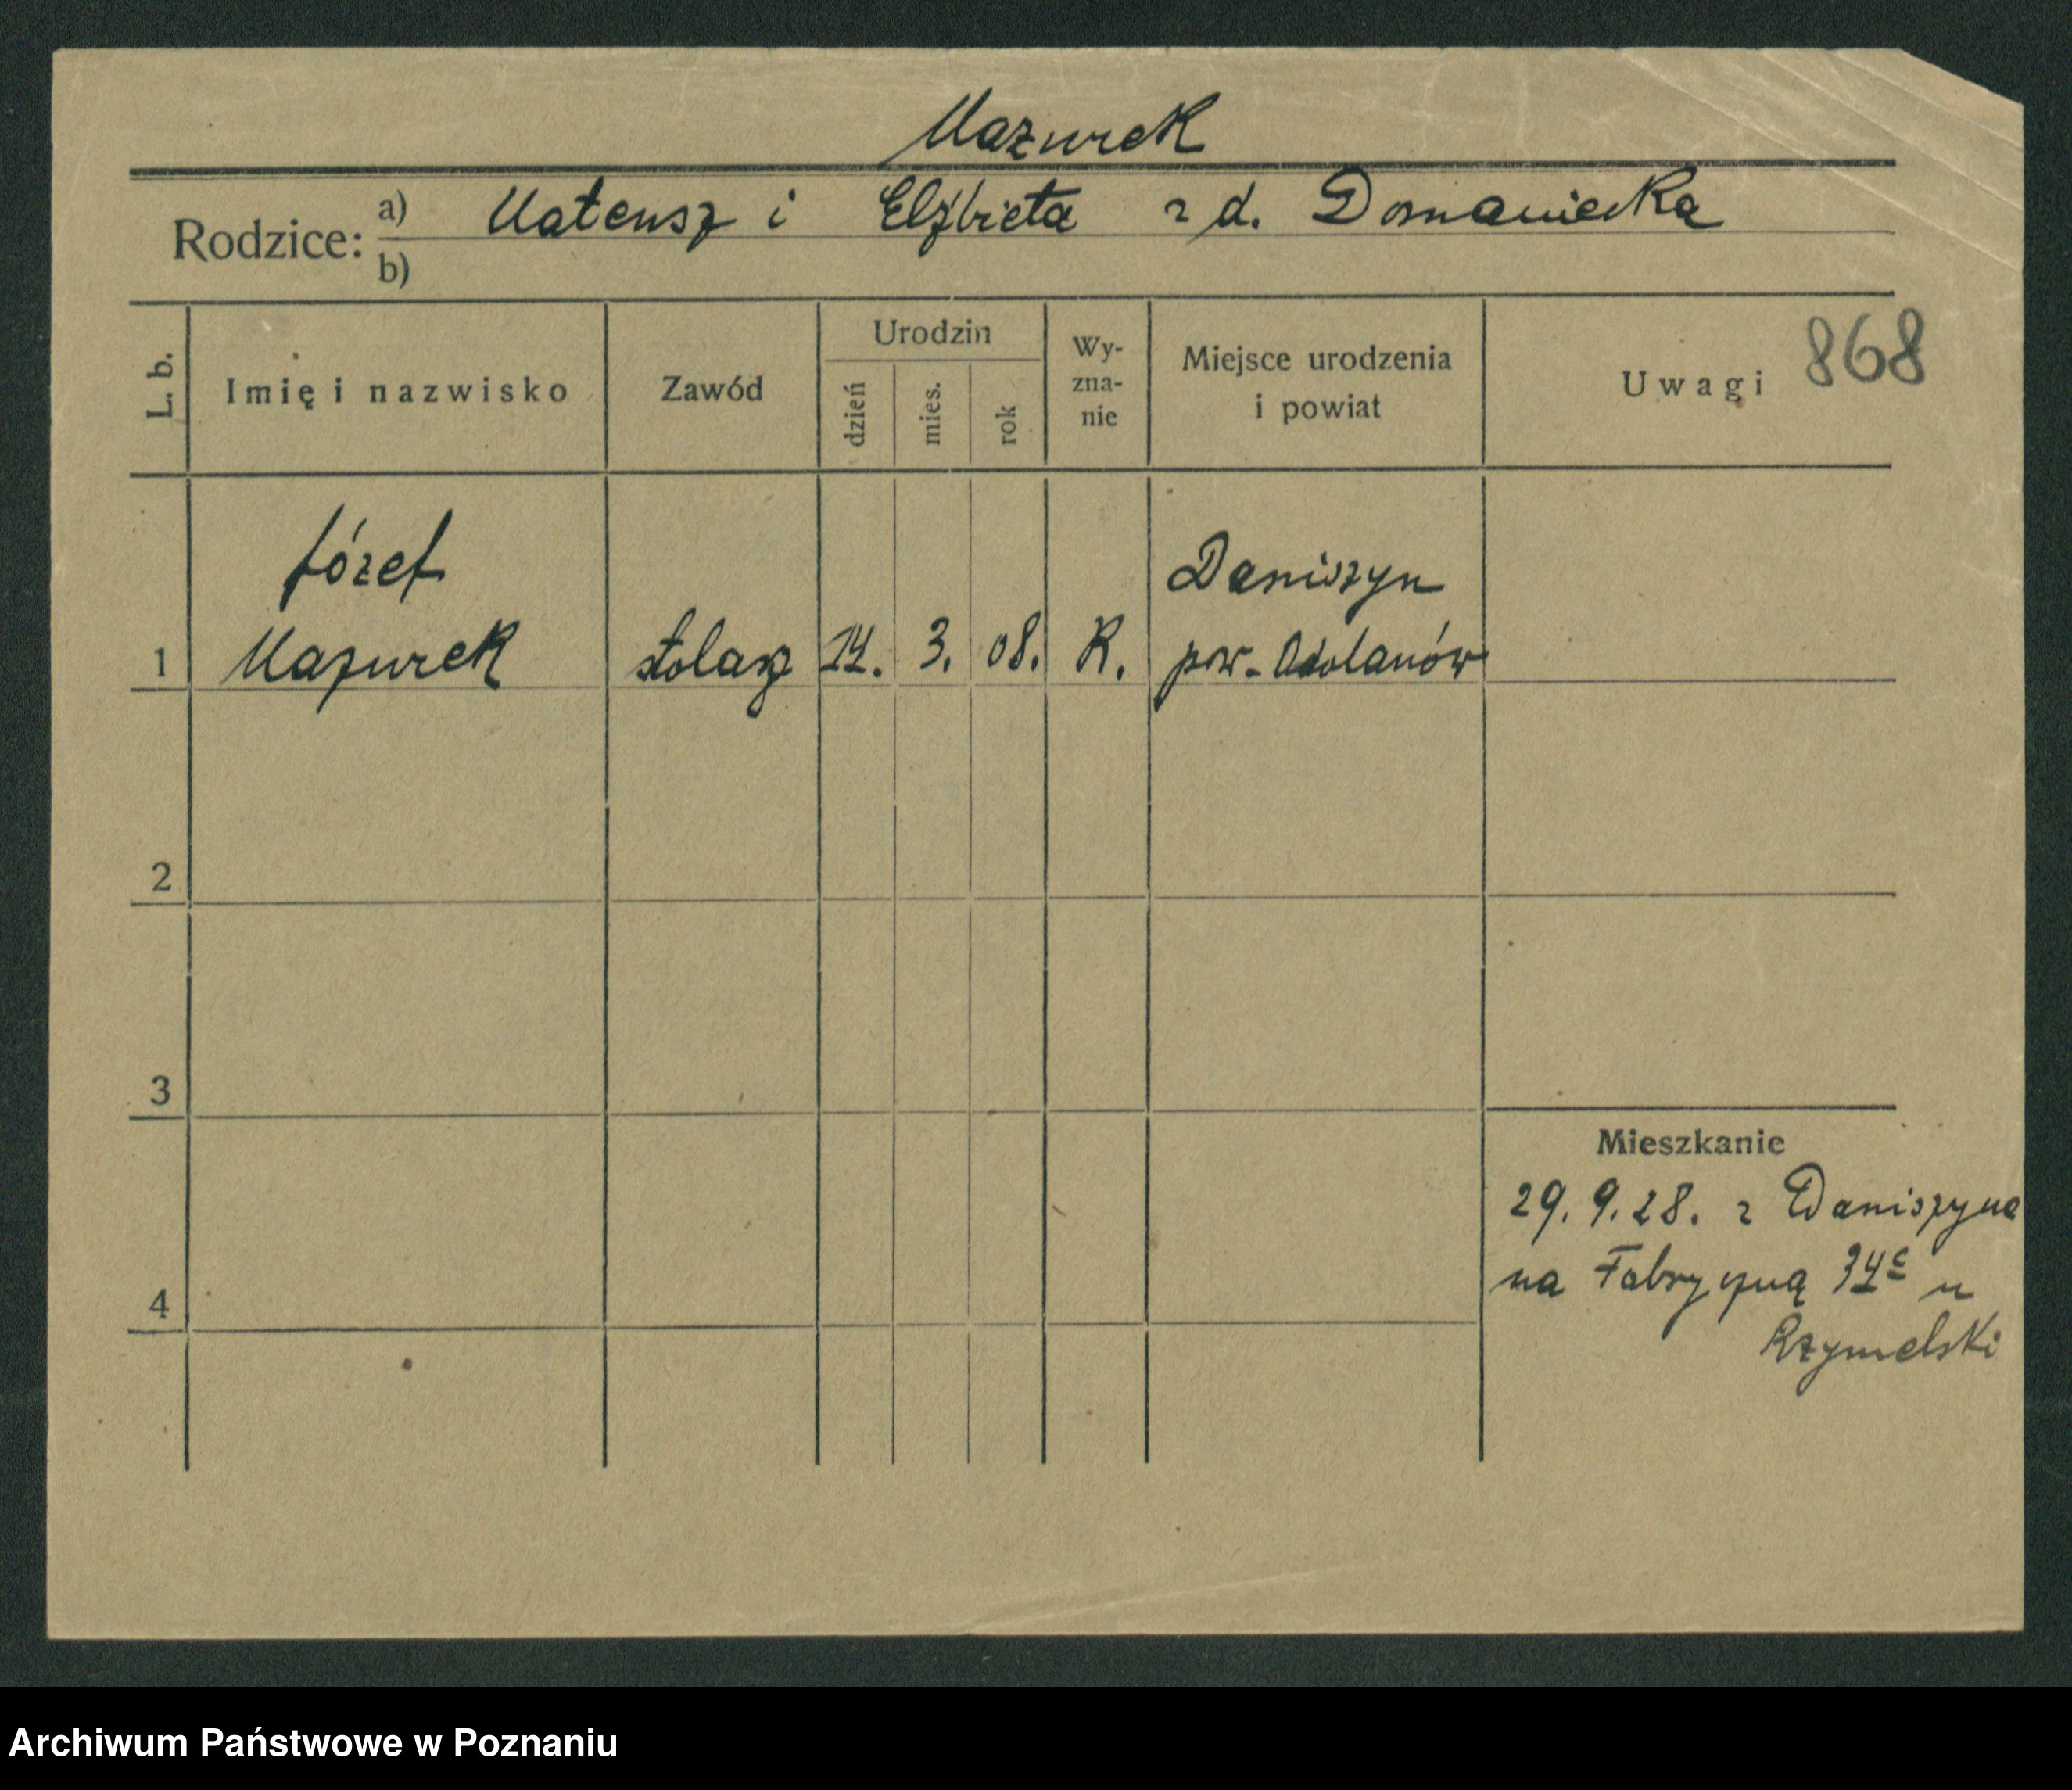 Mazurek
Rodzice: a) Mateusz i Elżbieta z d. Domaniecka
b)
L. b.
Imię i nazwisko
Zawód
Urodzin
dzień
mies.
rok
Wy-
zna-
nie
Miejsce urodzenia
i powiat
Uwagi
868
Józef
Daniszyn
1 Mazurek stolarz 14. 3. 08. R. pow. Odolanów
2
3
Mieszkanie
29. 9. 28. z Daniszyna
na Fabryczną 34c u
4
Rzymelski
Archiwum Państwowe w Poznaniu